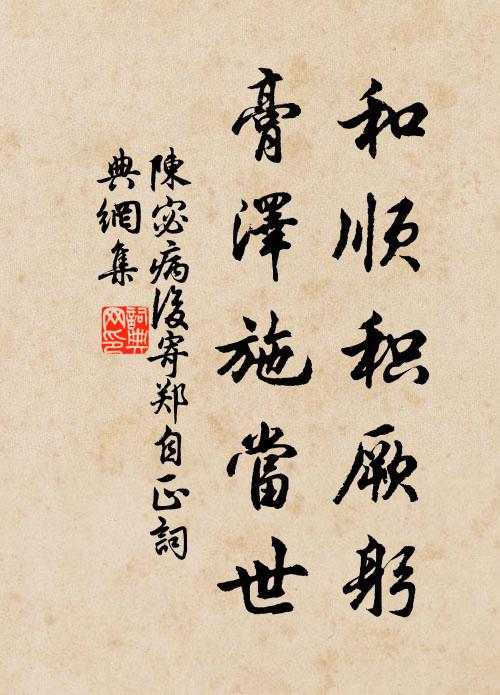 和顺积厥躬
膏澤施當世
陳宓病後寄郑自正詞
典網集
詞典网印